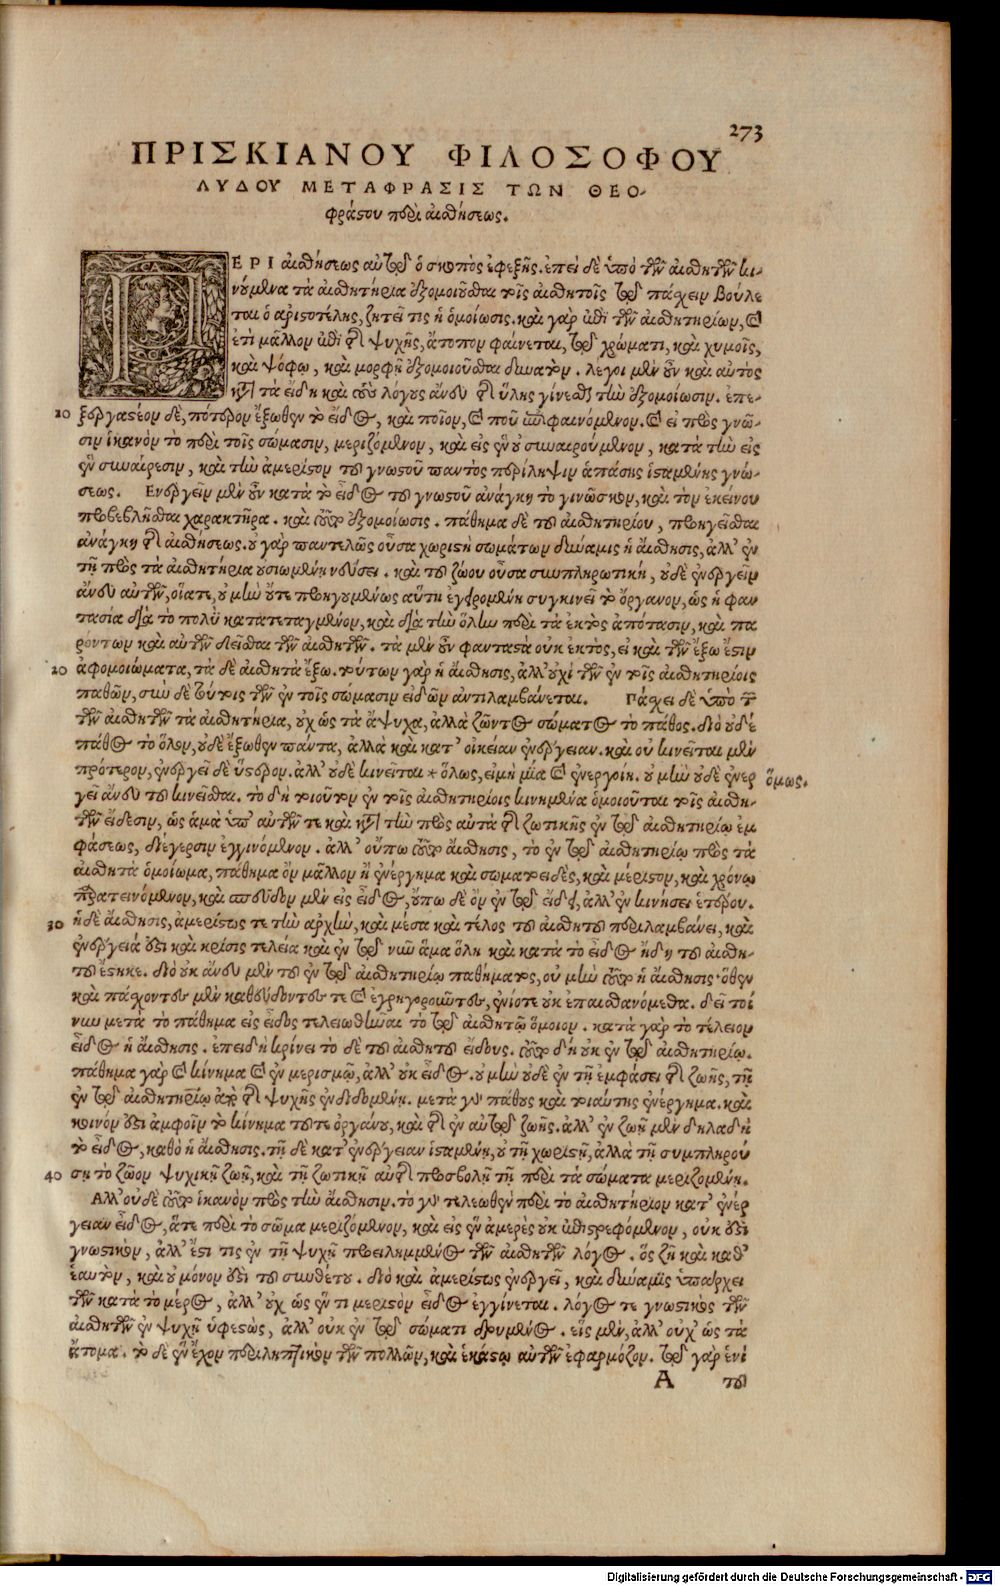 273
ΠΡΙΣΚΙΑΝΟΥ ΦΙΛΟΣΟΦΟΥ
ΛΥΔΟΥ ΜΕΤΑΦΡΑΣΙΣ ΤΩΝ ΘΕΟ-
φράστου περὶ αἰσθήσεως.
ΠΕΡΙ αἰσθήσεως αὐτῷ ὁ σκοπὸς ἐφεξῆς. ἐπεὶ δὲ ὑπὸ τῶν αἰσθητῶν κι-
νούμενα τὰ αἰσθητήρια ἐξομοιοῦσθαι τοῖς αἰσθητοῖς τῷ πάσχειν βούλε
ται ὁ ἀριστοτέλης, ζητεῖ τις ἡ ὁμοίωσις. καὶ γὰρ ἐπὶ τῶν αἰσθητηρίων, καὶ
ἔτι μᾶλλον ἐπὶ τῆς ψυχῆς, ἄτοπον φαίνεται, τῷ χρώματι, καὶ χυμοῖς,
καὶ ψόφῳ, καὶ μορφῇ ἐξομοιοῦσθαι δύνατον. λέγοι μὲν οὖν καὶ αὐτὸς
κατὰ τὰ εἴδη καὶ τοὺς λόγους ἄνευ τῆς ὕλης γίνεσθαι τὴν ἐξομοίωσιν. ἐπε-
10 ξεργαστέον δὲ, πότερον ἔξωθεν τὸ εἶδος, καὶ ποῖον, καὶ ποῦ ἐπιφαινόμενον. καὶ εἰ πρὸς γνῶ-
σιν ἱκανὸν τὸ περὶ τοῖς σώμασιν, μεριζόμενον, καὶ εἰς ἓν οὐ συναιρούμενον, κατὰ τὴν εἰς
ἓν συναίρεσιν, καὶ τὴν ἀμέριστον τοῦ γνωστοῦ παντὸς περίληψιν ἁπάσης ἱσταμένης γνώ-
σεως. Ενεργεῖν μὲν οὖν κατὰ τὸ εἶδος τοῦ γνωστοῦ ἀνάγκη τὸ γινῶσκον, καὶ τὸν ἐκείνου
προβεβλῆσθαι χαρακτῆρα. καὶ τοῦτο ἐξομοίωσις. πάθημα δὲ τοῦ αἰσθητηρίου, προηγεῖσθαι
ἀνάγκη τῆς αἰσθήσεως. οὐ γὰρ παντελῶς οὖσα χωριστὴ σωμάτων δύναμις ἡ αἴσθησις, ἀλλ' ἐν
τῇ πρὸς τὰ αἰσθητήρια οὐσιωμένη νεύσει. καὶ τοῦ ζώου οὖσα συμπληρωτικὴ, οὐδὲ ἐνεργεῖν
ἄνευ αὐτῶν, οἵατε, οὐ μὴν οὔτε προηγουμένως αὕτη ἐγειρομένη συγκινεῖ τὸ ὄργανον, ὡς ἡ φαν
τασία διὰ τὸ πολὺ κατατεταγμένον, καὶ διὰ τὴν ὅλην περὶ τὰ ἐκτὸς ἀπότασιν, καὶ πα
ρόντων καὶ αὐτῶν δεῖσθαι τῶν αἰσθητῶν. τὰ μὲν οὖν φανταστὰ οὐκ ἐκτὸς, εἰ καὶ τῶν ἔξω ἔστιν
20 ἀφομοιώματα, τὰ δὲ αἰσθητὰ ἔξω. τούτων γὰρ ἡ αἴσθησις, ἀλλ' οὐχὶ τῶν ἐν τοῖς αἰσθητηρίοις
παθῶν, σὺν δὲ τούτοις τῶν ἐν τοῖς σώμασιν εἰδῶν ἀντιλαμβάνεται. Πάσχει δὲ ὑπὸ
τῶν αἰσθητῶν τὰ αἰσθητήρια, οὐχ ὡς τὰ ἄψυχα, ἀλλὰ ζῶντος σώματος τὸ πάθος. διὸ οὐδὲ
πάθος τὸ ὅλον, οὐδὲ ἔξωθεν πάντα, ἀλλὰ καὶ κατ' οἰκείαν ἐνέργειαν. καὶ οὐ κινεῖται μὲν
πρότερον, ἐνεργεῖ δὲ ὕστερον. ἀλλ' οὐδὲ κινεῖται * ὅλως, εἰμὴ μία καὶ ἐνεργοίη. οὐ μὴν οὐδὲ ἐνερ ὅμως.
γεῖ ἄνευ τοῦ κινεῖσθαι. τὸ δὴ τοιοῦτον ἐν τοῖς αἰσθητηρίοις κινημένα ὁμοιοῦται τοῖς αἰσθη-
τῶν εἴδεσιν, ὡς ἁμὰ ὑπ' αὐτῶν τε καὶ κατὰ τὴν πρὸς αὐτὰ τῆς ζωτικῆς ἐν τῷ αἰσθητηρίῳ ἐμ
φάσεως, διέγερσιν ἐγγινόμενον. ἀλλ' οὔπω τοῦτο αἴσθησις, τὸ ἐν τῷ αἰσθητηρίῳ πρὸς τὰ
αἰσθητὰ ὁμοίωμα, πάθημα ὂν μᾶλλον ἢ ἐνέργημα καὶ σωματοειδὲς, καὶ μέριστον, καὶ χρόνῳ
παρατεινόμενον, καὶ σπεῦδον μὲν εἰς εἶδος, οὔπω δὲ ὂν ἐν τῷ εἴδει, ἀλλ' ἐν κινήσει ἑτέρου.
30 ἡ δὲ αἴσθησις, ἀμερίστως τε τὴν ἀρχὴν, καὶ μέσα καὶ τέλος τοῦ αἰσθητοῦ περιλαμβάνει, καὶ
ἐνέργειά ἐστι καὶ κρίσις τελεία καὶ ἐν τῷ νῦν ἅμα ὅλη καὶ κατὰ τὸ εἶδος ἤδη τοῦ αἰσθη-
τοῦ ἕστηκε. διὸ οὐκ ἄνευ μὲν τοῦ ἐν τῷ αἰσθητηρίῳ παθήματος, οὐ μὴν τοῦτο ἡ αἴσθησις· ὅθεν
καὶ πάσχοντος μὲν καθεύδοντός τε καὶ ἐγρηγορῶντος, ἐνίοτε οὐκ ἐπαισθανόμεθα. δεῖ τοί
νυν μετὰ τὸ πάθημα εἰς εἶδος τελειωθῆναι τὸ τῷ αἰσθητῷ ὅμοιον. κατὰ γὰρ τὸ τέλειον
εἶδος ἡ αἴσθησις. ἐπειδὴ κρίνει τὸ δὲ τοῦ αἰσθητοῦ εἴδους. τοῦτο δὴ οὐκ ἐν τῷ αἰσθητηρίῳ.
πάθημα γὰρ καὶ κίνημα καὶ ἐν μερισμῷ, ἀλλ' οὐκ εἶδος. οὐ μὴν οὐδὲ ἐν τῇ ἐμφάσει τῆς ζωῆς, τῇ
ἐν τῷ αἰσθητηρίῳ ἀπὸ τῆς ψυχῆς ἐνδιδομένῃ. μετὰ γὰρ πάθους καὶ τοιαύτης ἐνέργημα. καὶ
κοινόν ἐστι ἀμφοῖν τὸ κίνημα τοῦτε ὀργάνου, καὶ τῆς ἐν αὐτῷ ζωῆς. ἀλλ' ἐν ζωῇ μὲν δηλαδὴ
τὸ εἶδος, καθὸ ἡ αἴσθησις. τῇ δὲ κατ' ἐνέργειαν ἱσταμένῃ, οὐ τῇ χωριστῇ, ἀλλὰ τῇ συμπληρού
40 σῃ τὸ ζῶον ψυχικῇ ζωῇ, καὶ τῇ ζωτικῇ αὐτῆς προσβολῇ τῇ περὶ τὰ σώματα μεριζομένῃ.
Αλλ' οὐδὲ τοῦτο ἱκανὸν πρὸς τὴν αἴσθησιν. τὸ γὰρ τελεωθὲν περὶ τὸ αἰσθητήριον κατ' ἐνέρ
γειαν εἶδος, ἅτε περὶ τὸ σῶμα μεριζόμενον, καὶ εἰς ἓν ἀμερὲς οὐκ ἐπιστρεφόμενον, οὐκ ἐστὶ
γνωστικὸν, ἀλλ' ἔστι τις ἐν τῇ ψυχῇ προειλημμένος τῶν αἰσθητῶν λόγος. ὃς ζῇ καὶ καθ'
ἑαυτὸν, καὶ οὐ μόνον ἐστὶ τοῦ συνθέτου. διὸ καὶ ἀμερίστως ἐνεργεῖ, καὶ δύναμις ὑπάρχει
τῶν κατὰ τὸ μέρος, ἀλλ' οὐχ ὡς ἕν τι μεριστὸν εἶδος ἐγγίνεται. λόγος τε γνωστικὸς τῶν
αἰσθητῶν ἐν ψυχῇ ὑφεστὼς, ἀλλ' οὐκ ἐν τῷ σώματι δρυμένος. εἷς μὲν, ἀλλ' οὐχ' ὡς τὰ
ἄτομα. τὸ δὲ ἓν ἔχον περιληπτικὸν τῶν πολλῶν, καὶ ἑκάστῳ αὐτῶν ἐφαρμόζον. τῷ γὰρ ἑνὶ
A τοῦ
Digitalisierung gefördert durch die Deutsche Forschungsgemeinschaft - DFG